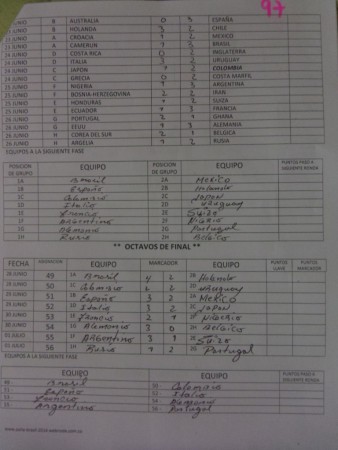 97
JUNIO B AUSTRALIA 0 3 ESPAÑA
JUNIO B HOLANDA 3 2 CHILE
JUNIO A CROACIA 2 MEXICO
JUNIO A CAMERUN 3 BRASIL
JUNIO D COSTA RICA 0 2 INGLATERRA
JUNIO D ITALIA 3 2 URUGUAY
JUNIO C JAPON 2 COLOMBIA
JUNIO C GRECIA 0 2 COSTA MARFIL
JUNIO F NIGERIA 3 ARGENTINA
25 JUNIO F BOSNIA-HERZEGOVINA 2 2 IRAN
25 JUNIO E HONDURAS 2 SUIZA
25 JUNIO E ECUADOR 3 FRANCIA
26 JUNIO G PORTUGAL 3 1 GHANA
26 JUNIO G EEUU 3 ALEMANIA
26 JUNIO H COREA DEL SUR 2 BELGICA
26 JUNIO H ARGELIA 2 RUSIA
EQUIPOS A LA SIGUIENTE FASE
POSICION DE GRUPO EQUIPO POSICION DE GRUPO EQUIPO PUNTOS PASO A SIGUIENTE RONDA
1A Brasil 2A MEXICO
1B España 2B Holanda
1C Colombia 2C JAPON
1D Italia 2D Uruguay
1E Francia 2E Suiza
ARGENTINA
1G Alemania 2G Portugal
1H Rusia 2H Belgica
** OCTAVOS DE FINAL **
FECHA EQUIPO MARCADOR EQUIPO PUNTOS PUNTOS MARCADOR
28 JUNIO 49 1A Brasil 4 2 2B Holanda
28 JUNIO 50 1C Colombia 2 2D Uruguay
29 JUNIO 51 1B España 3 2 2A MEXICO
29 JUNIO 52 1D Italia 3 2 2C JAPON
30 JUNIO 53 1E Francia 2 1
30 JUNIO 54 1G Alemania 3 0 2H Belgica
01 JULIO 55 ARGENTINA 3 1 2E Suiza
01 JULIO 56 1H Rusia 1 2 2G Portugal
EQUIPOS A LA SIGUIENTE FASE
EQUIPO EQUIPO PUNTOS PASO A SIGUIENTE RONDA
Brasil Colombia
España Italia
Francia Alemania
Argentina Portugal